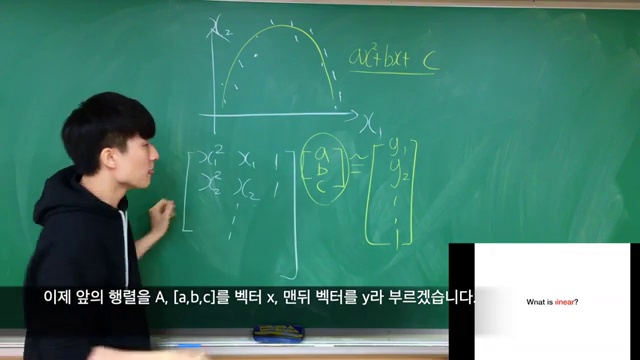 x₂
ax²+bx+c
x₁
[x₁² x₁ 1] [a] ≅ [y₁]
[x₂² x₂ 1] [b] [y₂]
[c]
이제 앞의 행렬을 A, [a,b,c]를 벡터 x, 맨뒤 벡터를 y라 부르겠습니다.
What is linear?